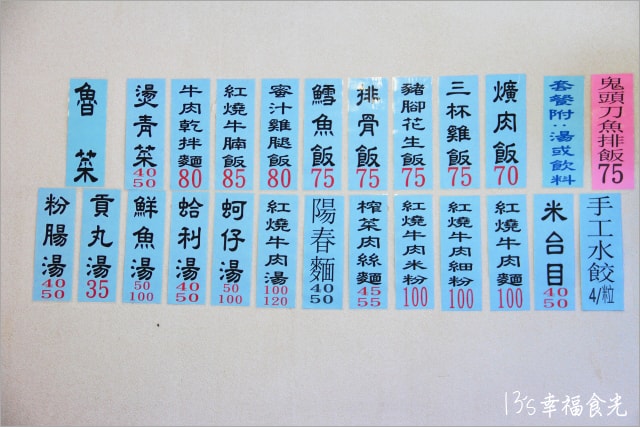 鬼頭刀魚排飯 75
套餐附:湯或飲料
爌肉飯 70
三杯雞飯 75
豬腳花生飯 75
排骨飯 75
鱈魚飯 75
蜜汁雞腿飯 80
紅燒牛腩飯 85
牛肉乾拌麵 80
燙青菜 40 50
魯菜
手工水餃 4/粒
米台目 40 50
紅燒牛肉麵 100
紅燒牛肉細粉 100
紅燒牛肉米粉 100
榨菜肉絲麵 45 55
陽春麵 40 50
紅燒牛肉湯 100 120
蚵仔湯 50 100
蛤利湯 40 50
鮮魚湯 50 100
貢丸湯 35
粉腸湯 40 50
13's幸福食光